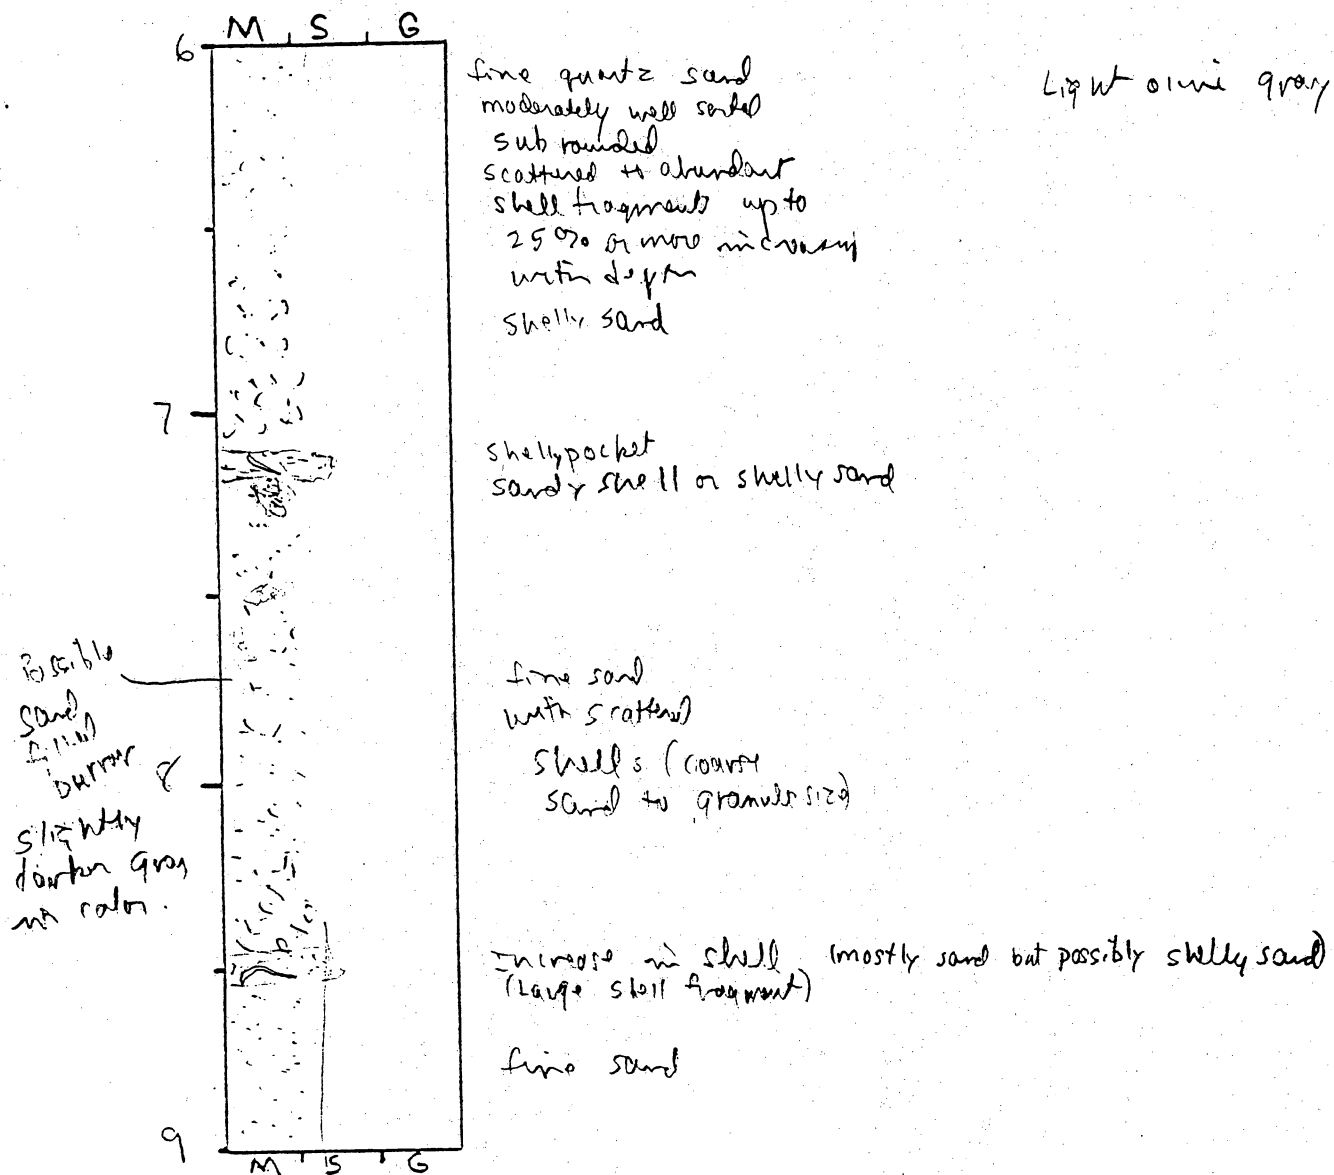 M S G
6
fine quartz sand
moderately well sorted
sub rounded
scattered to abundant
shell fragments up to
25% or more increasing
with depth
shelly sand
Light olive gray
7
shelly pocket
sandy shell or shelly sand
Possible
sand
filled
burrow
slightly
darker gray
in color.
fine sand
with scattered
shells (coarse
sand to granule size)
8
increase in shell (mostly sand but possibly shelly sand)
(Large shell fragment)
fine sand
9
M S G